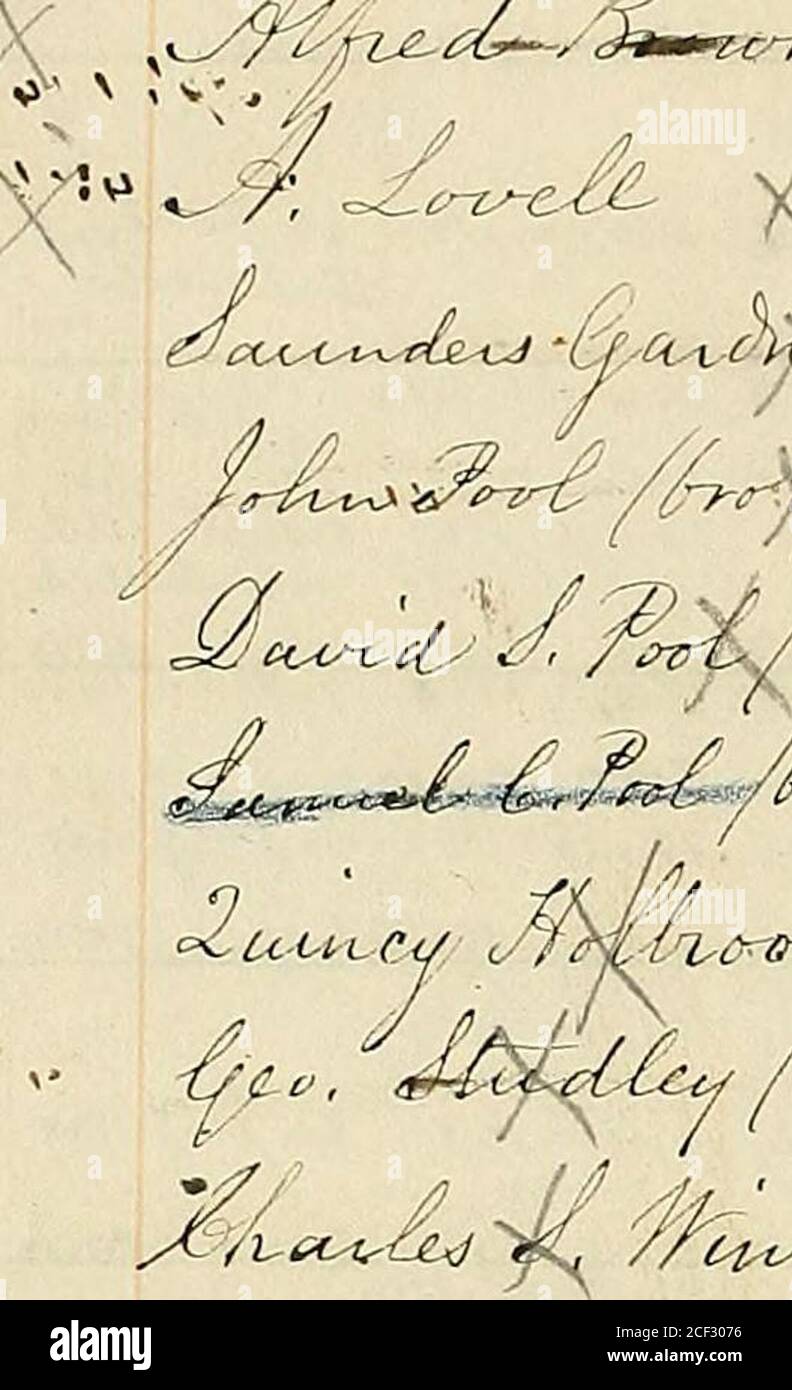 Alfred Brow
A. Lovell
Saunders Gardn
John Pool (bro
David S. Pool (
Samuel C. Pool (b
Quincy Holbroo
Geo. Studley (
Charles S. Win
alamy
Image ID: 2CF3076
www.alamy.com